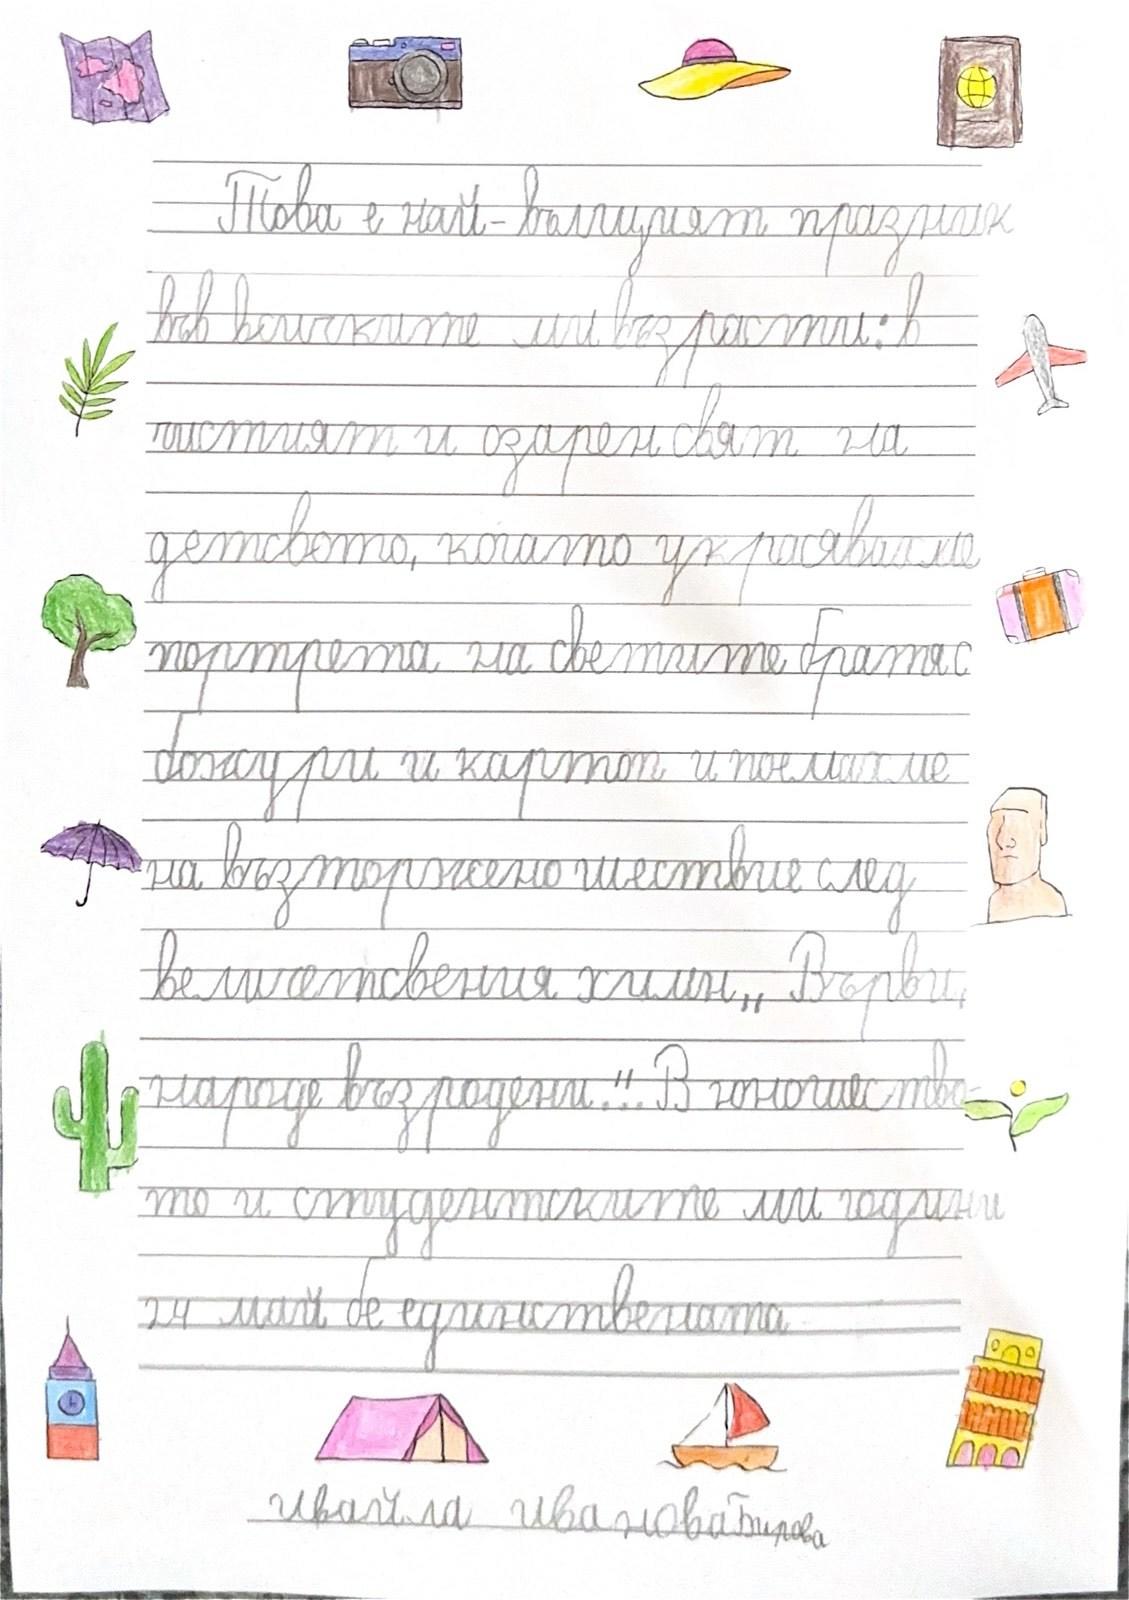 Това е най-вълшият празник
във всичките ми възрасти: в
чистият и озарен свят на
детсвото, когато украсявахме
портрета на светите братя с
божури и картоп и поемахме
на възторжено шествие след
величетсвения химн „Върви,
народе възродени!“. В юношество-
то и студентските ми години
24 май бе единствената
Ивайла Иванова Бирова